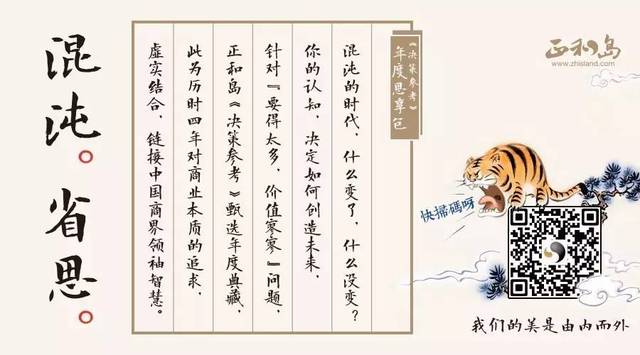 混沌。省思。
《决策参考》
年度思享包
混沌的时代，什么变了，什么没变？
你的认知，决定如何创造未来，
针对『要得太多，价值寥寥』问题，
正和岛《决策参考》甄选年度典藏，
此为历时四年对商业本质的追求，
虚实结合，链接中国商界领袖智慧。
正和岛
www.zhisland.com
快掃碼呀
我们的美是由内而外